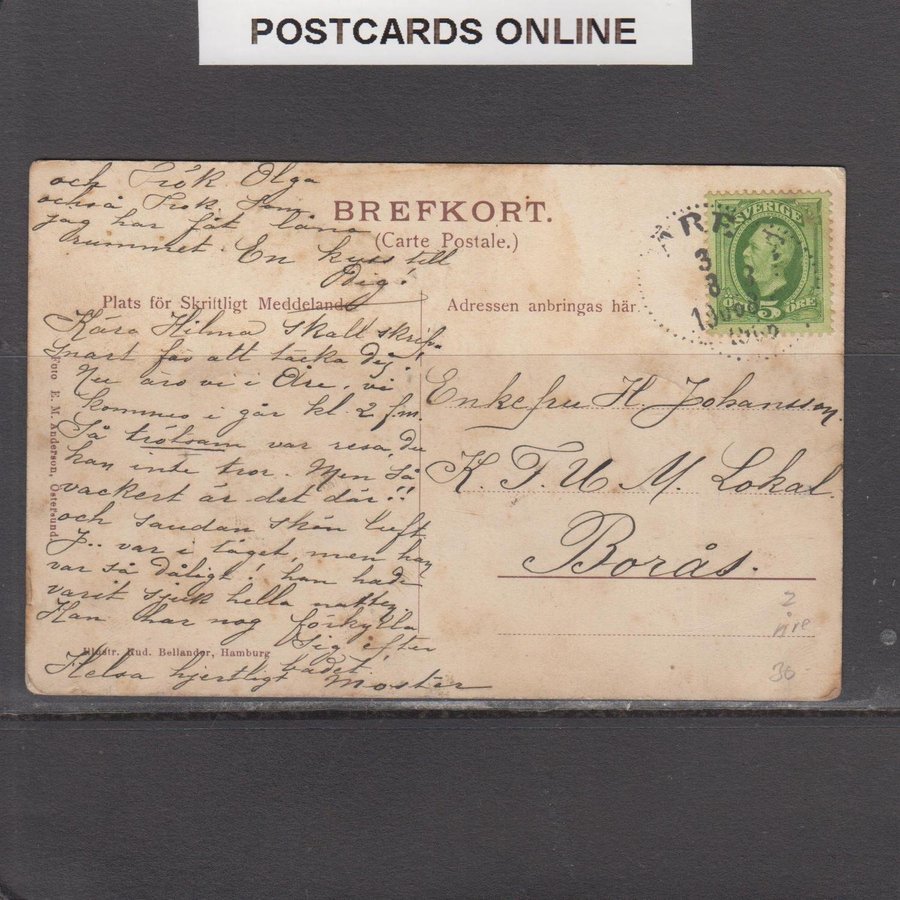 POSTCARDS ONLINE
och Frök Olga
också Frök
jag har fåt låna
rummet. En kyss till
Dig!
BREFKORT.
(Carte Postale.)
SVERIGE
5 ÖRE
ÅRE
3 8
1906
Plats för Skriftligt Meddelande
Adressen anbringas här
Kära Hilma skall skrifva
snart för att tacka dig!
Nu äro vi i Åre, vi
kommo i går kl. 2 f.m.
Så trötsam var resa, du
kan inte tror. Men så
vackert är det där!!
och saadan skön luft
J.. var i tåget, men han
var så dåligt! han hade
varit sjuk hella natten.
Han har nog förkylla
sig efter
badet.
Helsa hjertligt Moster
Enkefru H. Johansson.
K. F. U. M. Lokal.
Borås.
Foto E. M. Anderson, Östersund.
Illustr. Rud. Bellander, Hamburg
2
Åre
30